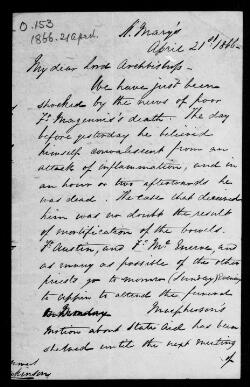 O.153
1866. 21 April.
St. Mary's
April 21st/1866 -
My dear Lord Archbishop -
We have just been
shocked by the news of poor
Fr. Magennis's death. The day
before yesterday he believed
himself convalescent from an
attack of inflammation, and in
an hour or two afterwards he
was dead. The ease that deceived
him was no doubt the result
of mortification of the bowels.
Fr. Austin, and Fr. McEnroe, and
as many as possible of the other
priests, go to-morrow (Sunday) Evening
to Appin to attend the funeral
on Monday. Macpherson's
Motion about State Aid has been
shelved until the next meeting
of